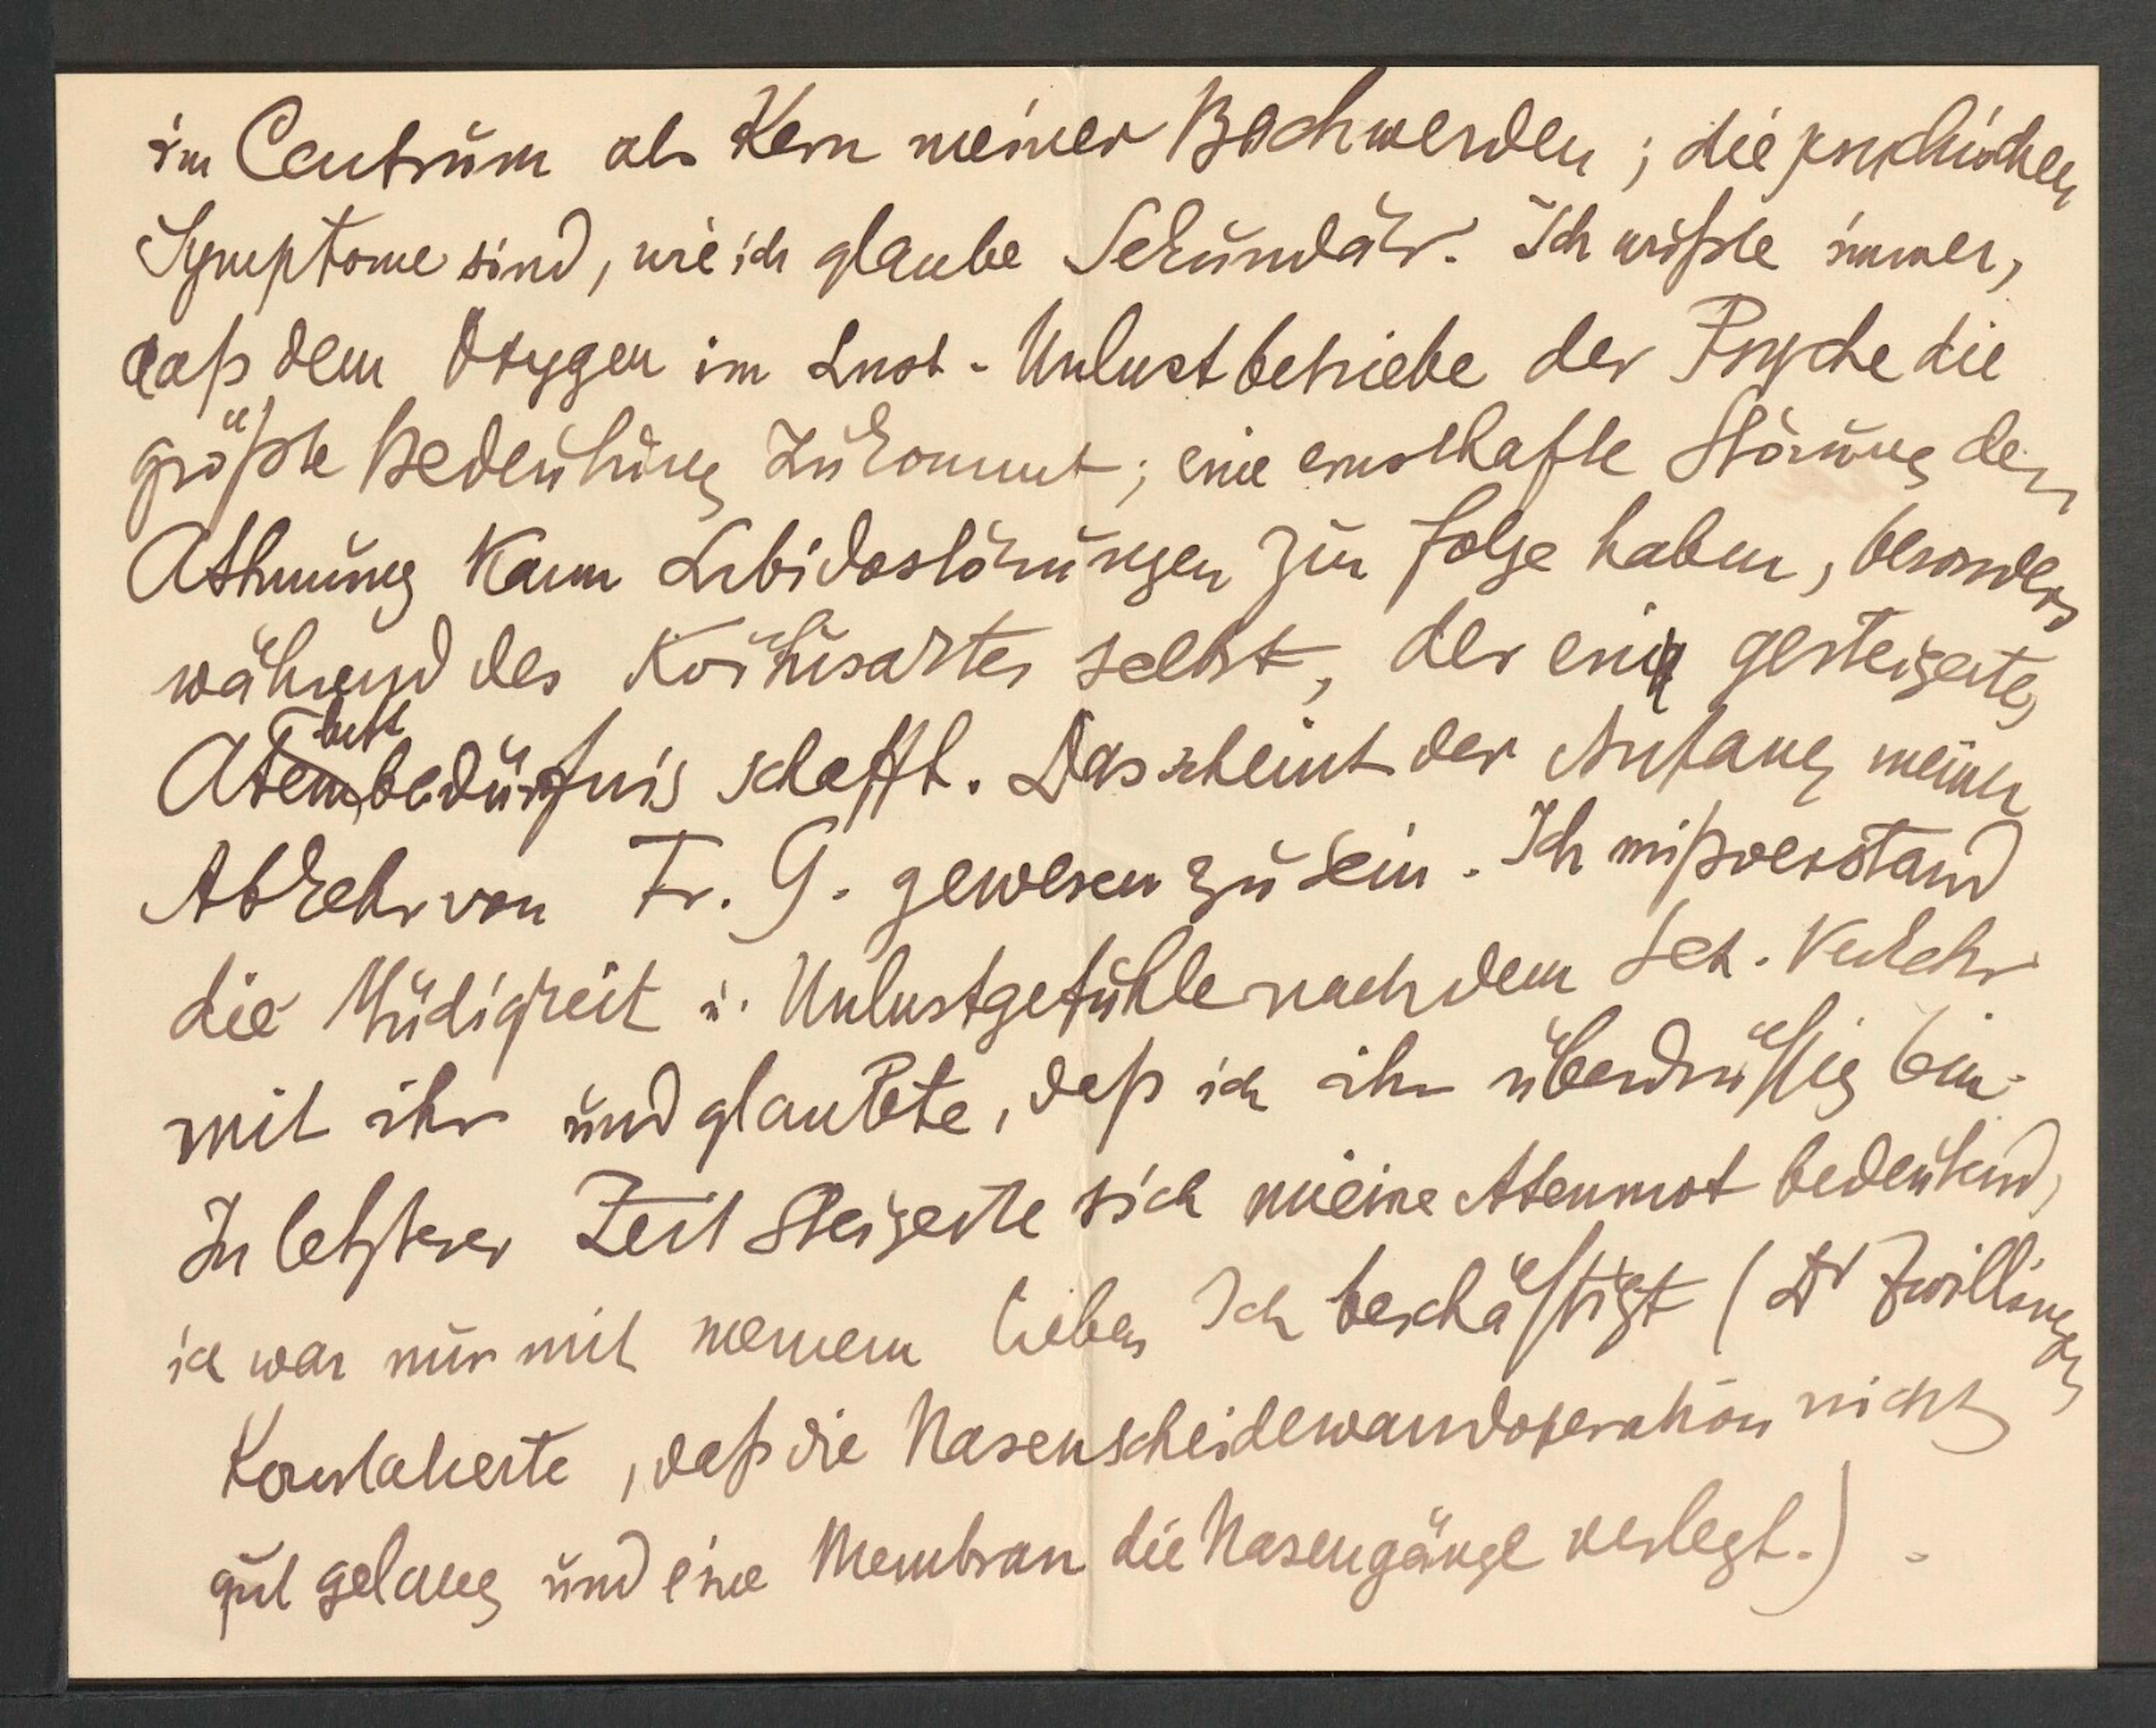 im Centrum als Kern meiner Beschwerden; die psychischen
Symptome sind, wie ich glaube Sekundär. Ich wußte immer,
daß dem Oxygen im Lust-Unlustbetriebe der Psyche die
größte Bedeutung zukommt; eine ernsthafte Störung der
Athmung kann Libidostörungen zur Folge haben, besonders
während des Koitusaktes selbst, der ein gesteigertes
Atembedürfnis schafft. Das scheint der Anfang meiner
Abkehr von Fr. G. gewesen zu sein. Ich mißverstand
die Müdigkeit u. Unlustgefühle nach dem Sex. Verkehr
mit ihr und glaubte, daß ich ihr überdrüssig bin.
In letzterer Zeit steigerte sich meine Atemnot bedeutend,
ich war nur mit meinem lieben Ich beschäftigt (Dr Zwillinger
Konstatierte, daß die Nasenscheidewandoperation nicht
gut gelang und eine Membran die Nasengänge verlegt.) -